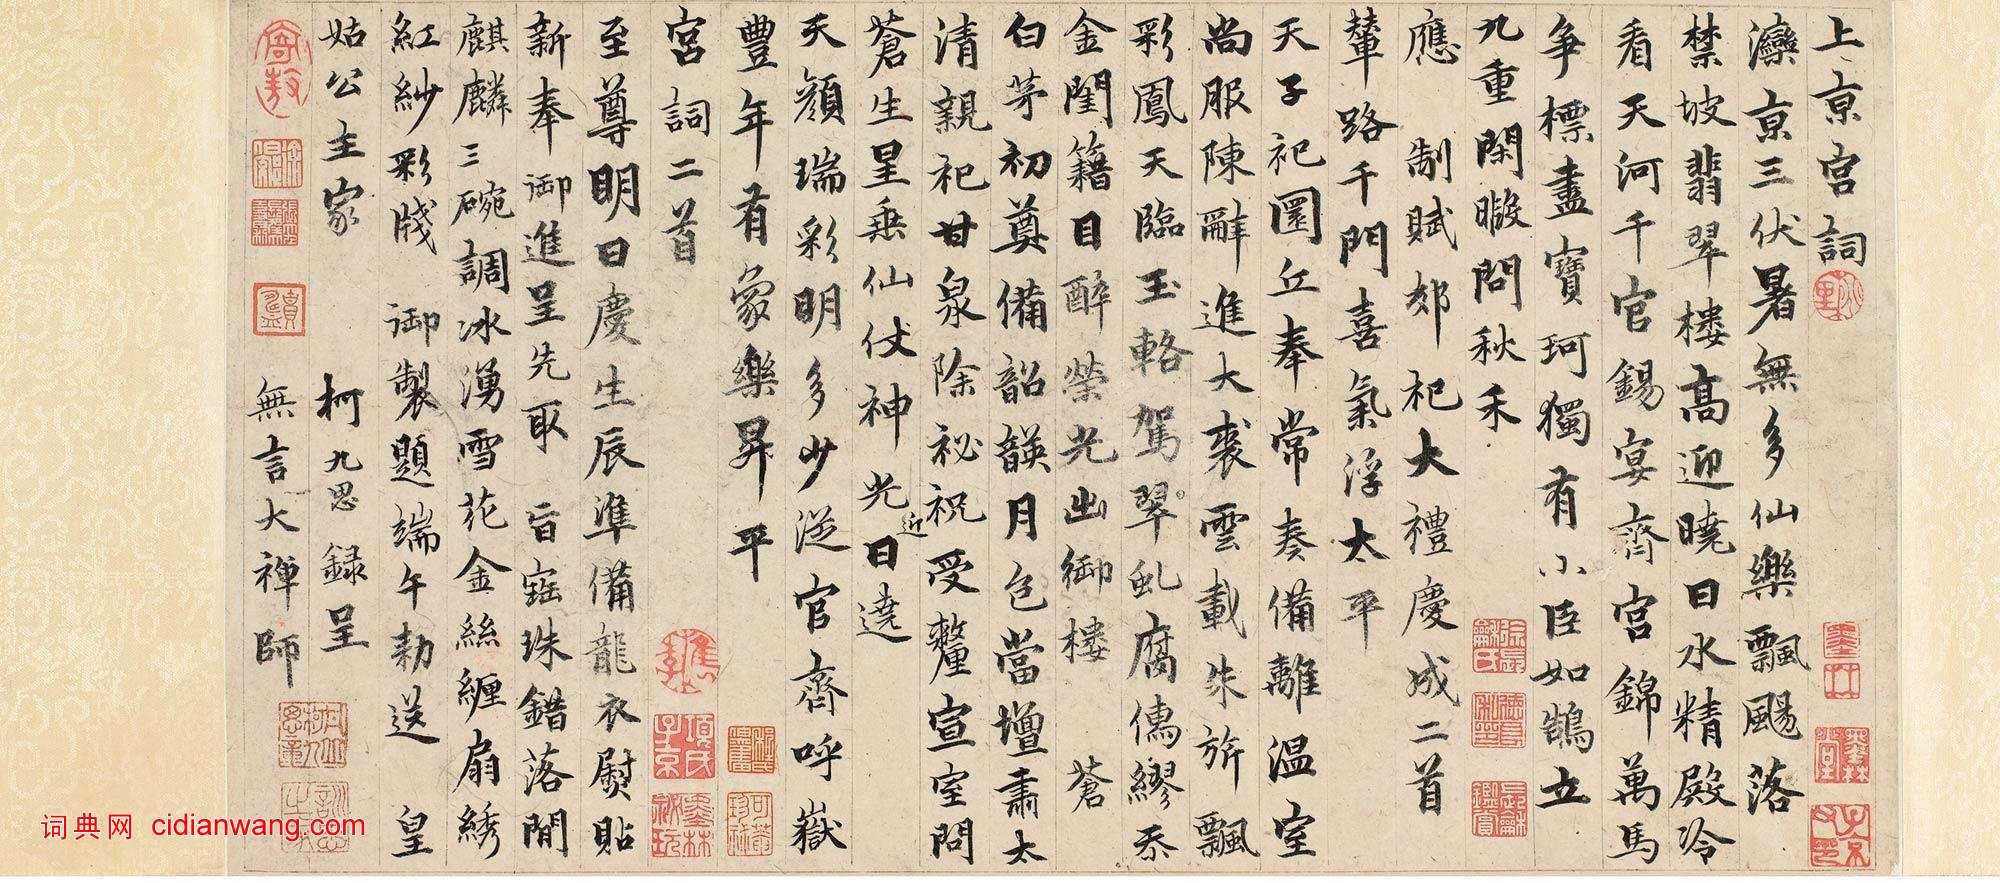 上京宮詞
灤京三伏暑無多仙樂飄颺落
禁坡翡翠樓高迎曉日水精殿冷
看天河千官錫宴齊宮錦萬馬
争標盡寶珂獨有小臣如鵠立
九重閑暇問秋禾
應制賦郊祀大禮慶成二首
輦路千門喜氣浮太平
天子祀圜丘奉常奏備離温室
尚服陳辭進大裘雲載朱旂飄
彩鳳天臨玉輅駕翠虬腐儒繆忝
金閨籍目醉榮光出御樓 蒼
白茅初奠備韶韺月色當壇肅太
清親祀甘泉除祕祝受釐宣室問
蒼生星垂仙仗神光近日遶
天顏瑞彩明多少從官齊呼嶽
豐年有象樂昇平
宮詞二首
至尊明日慶生辰準備龍衣熨貼
新奉御進呈先取旨寶珠錯落間
麒麟三碗調冰湧雪花金絲纏扇綉
紅紗彩牋御製題端午勑送皇
姑公主家
柯九思錄呈
無言大禅師
項氏子京
词典网 cidianwang.com